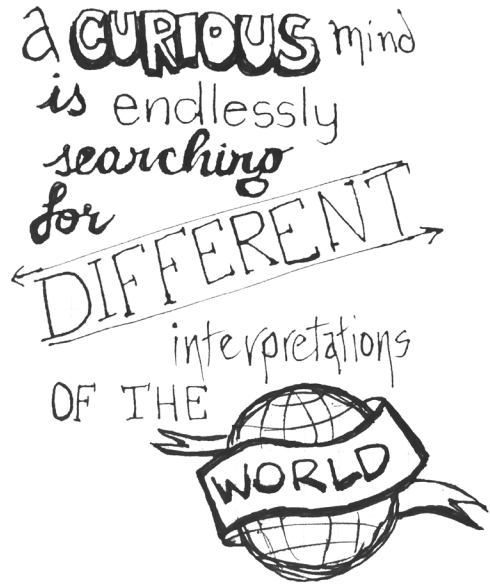 a CURIOUS mind
is endlessly
searching
for
DIFFERENT
interpretations
OF THE
WORLD